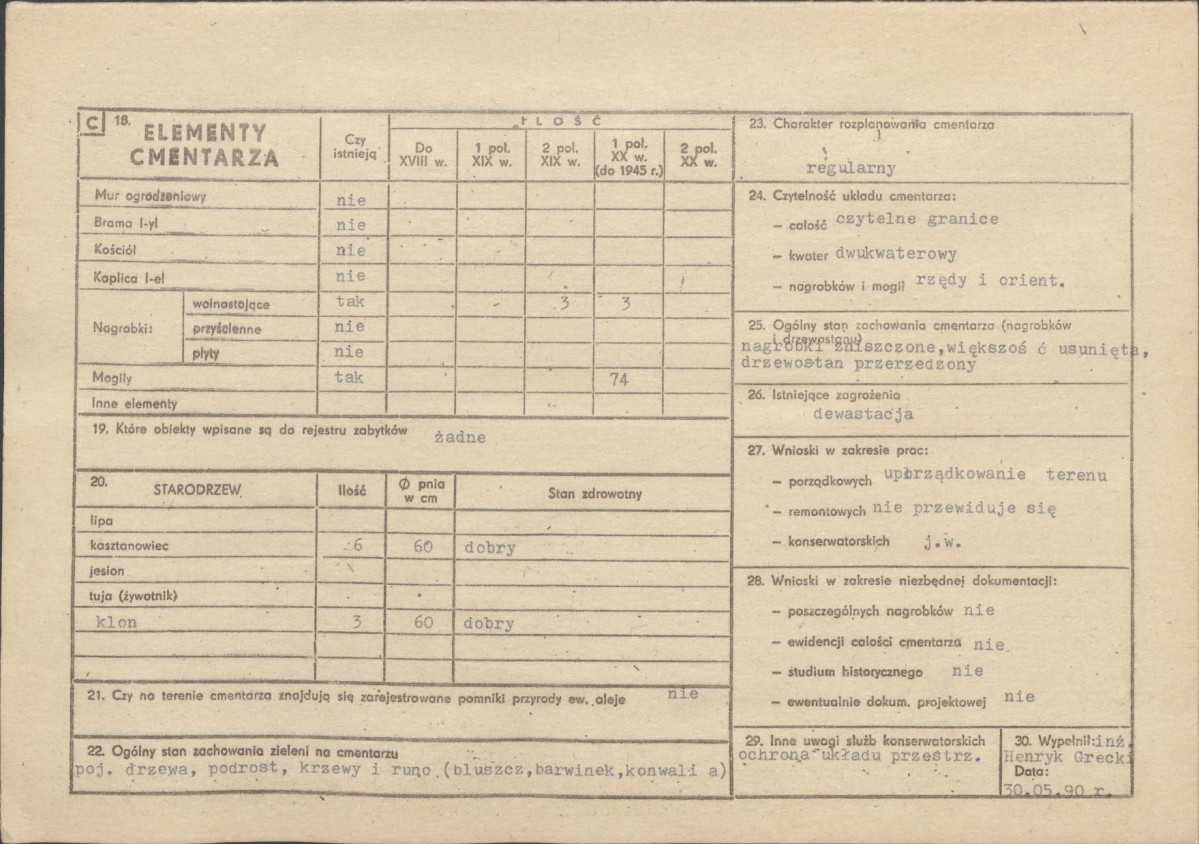 C 18. ELEMENTY CMENTARZA
Czy istnieją
I L O Ś Ć
Do XVIII w.
1 pol. XIX w.
2 pol. XIX w.
1 pol. XX w. (do 1945 r.)
2 pol. XX w.
Mur ogrodzeniowy nie
Brama I-yl nie
Kościół nie
Kaplica I-el nie
Nagrobki:
wolnostojące tak - 3 3
przyścienne nie
płyty nie
Mogiły tak 74
Inne elementy
19. Które obiekty wpisane są do rejestru zabytków żadne
20. STARODRZEW Ilość Ø pnia w cm Stan zdrowotny
lipa
kasztanowiec 6 60 dobry
jesion
tuja (żywotnik)
klon 3 60 dobry
21. Czy na terenie cmentarza znajdują się zarejestrowane pomniki przyrody ew. aleje nie
22. Ogólny stan zachowania zieleni na cmentarzu
poj. drzewa, podrost, krzewy i runo (bluszcz,barwinek,konwali a)
23. Charakter rozplanowania cmentarza
regularny
24. Czytelność układu cmentarza:
— całość czytelne granice
— kwater dwukwaterowy
— nagrobków i mogił rzędy i orient.
25. Ogólny stan zachowania cmentarza (nagrobków
i drzewostanu)
nagrobki zniszczone,większoś ć usunięta,
drzewostan przerzedzony
26. Istniejące zagrożenia
dewastacja
27. Wnioski w zakresie prac:
— porządkowych uporządkowanie terenu
— remontowych nie przewiduje się
— konserwatorskich j.w.
28. Wnioski w zakresie niezbędnej dokumentacji:
— poszczególnych nagrobków nie
— ewidencji całości cmentarza nie
— studium historycznego nie
— ewentualnie dokum. projektowej nie
29. Inne uwagi służb konserwatorskich
ochrona układu przestrz.
30. Wypełnił: inż.
Henryk Grecki
Data:
30.05.90 r.